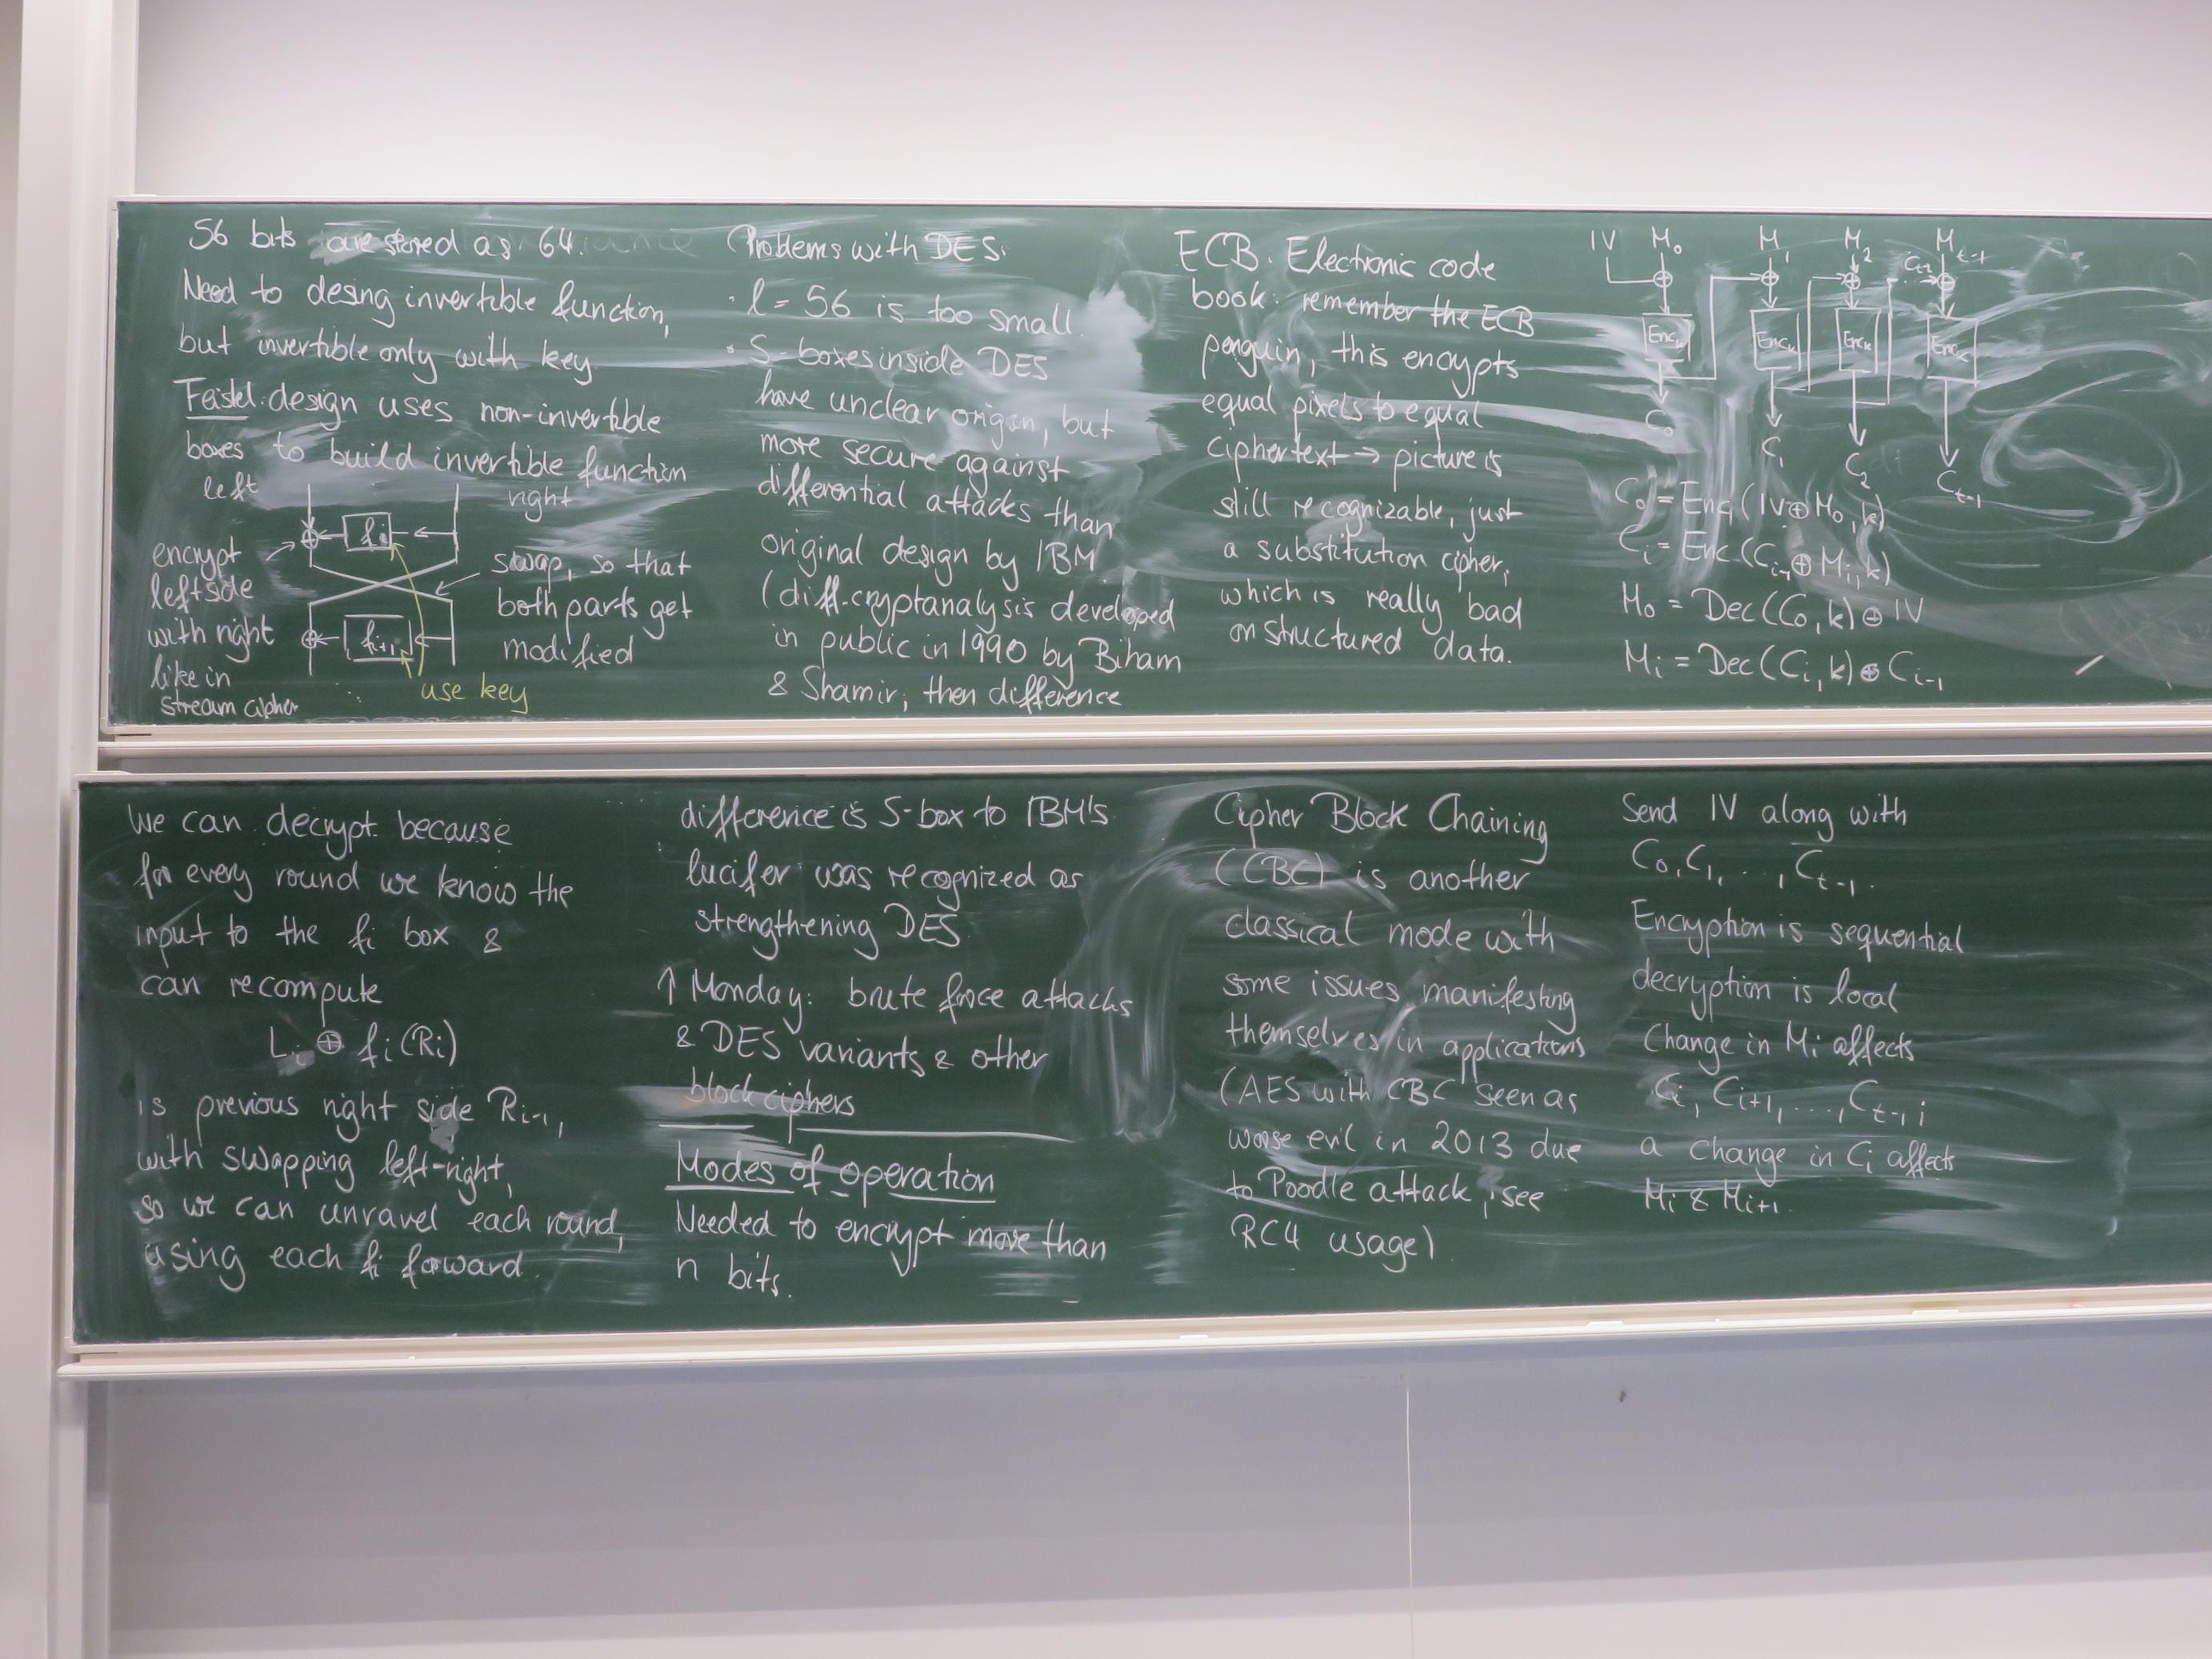 56 bits are stored as 64.
Need to desing invertible function,
but invertible only with key
Feistel: design uses non-invertible
boxes to build invertible function
left
right
fi
encrypt
left side
with right
like in
stream cipher
swap, so that
both parts get
modified
fi+1
use key
We can decrypt because
for every round we know the
input to the fi box &
can recompute
Li ⊕ fi(Ri)
is previous right side Ri-1,
with swapping left-right,
so we can unravel each round,
using each fi forward.
Problems with DES:
· l = 56 is too small
· S-boxes inside DES
have unclear origin, but
more secure against
differential attacks than
original design by IBM
(diff. cryptanalysis developed
in public in 1990 by Biham
& Shamir, then difference
difference is S-box to IBM's
lucifer was recognized as
strengthening DES
↑ Monday: brute force attacks
& DES variants & other
block ciphers
Modes of operation
Needed to encrypt more than
n bits.
ECB. Electronic code
book: remember the ECB
penguin, this encrypts
equal pixels to equal
ciphertext → picture is
still recognizable, just
a substitution cipher,
which is really bad
on structured data.
Cipher Block Chaining
(CBC) is another
classical mode with
some issues manifesting
themselves in applications
(AES with CBC seen as
worse evil in 2013 due
to Poodle attack, see
RC4 usage)
IV M0 M1 M2 Mt-1
Ct-2
Enck Enck Enck Enck
C0 C1 C2 Ct-1
C0 = Enc(IV⊕M0, k)
Ci = Enc(Ci-1⊕Mi, k)
M0 = Dec(C0, k) ⊕ IV
Mi = Dec(Ci, k) ⊕ Ci-1
Send IV along with
C0, C1, ..., Ct-1.
Encryption is sequential
decryption is local
Change in Mi affects
Ci, Ci+1, ..., Ct-1;
a change in Ci affects
Mi & Mi+1.